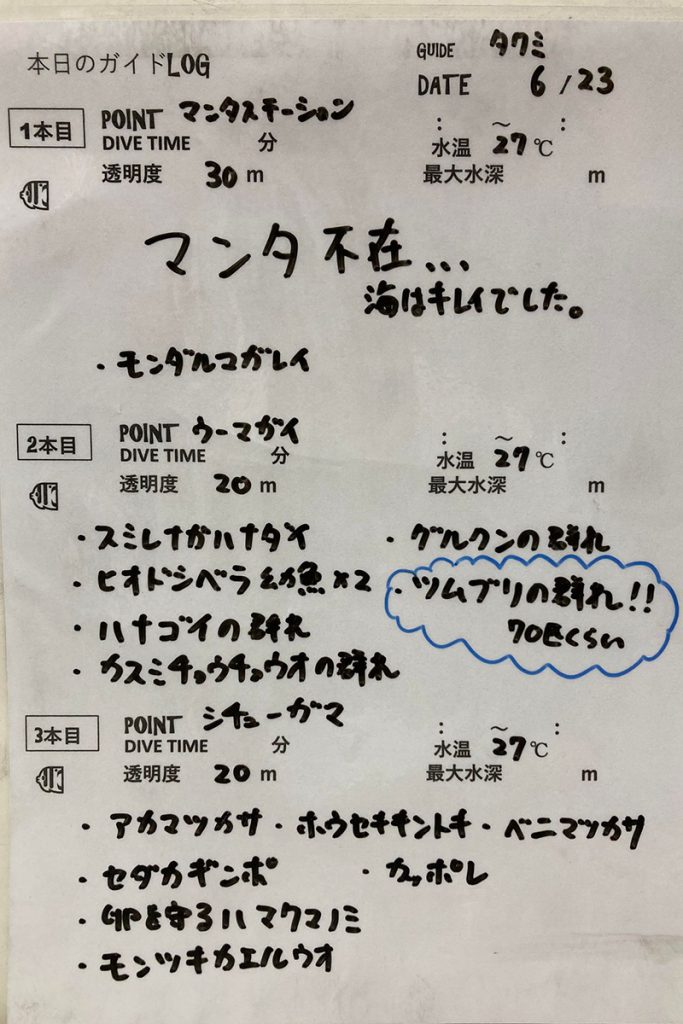 本日のガイドLOG
GUIDE タクミ
DATE 6/23
1本目 POINT マンタステーション : ~ :
DIVE TIME 分 水温 27℃
透明度 30 m 最大水深 m
マンタ不在...
海はキレイでした。
・モンダルマガレイ
2本目 POINT ウーマガイ : ~ :
DIVE TIME 分 水温 27℃
透明度 20 m 最大水深 m
・スミレナガハナダイ ・グルクンの群れ
・ヒオドシベラ幼魚×2 ・ツムブリの群れ!!
70匹くらい
・ハナゴイの群れ
・カスミチョウチョウオの群れ
3本目 POINT シチューガマ : ~ :
DIVE TIME 分 水温 27℃
透明度 20 m 最大水深 m
・アカマツカサ ・ホウセキキントキ ・ベニマツカサ
・セダカギンポ ・カッポレ
・卵を守るハマクマノミ
・モンツキカエルウオ